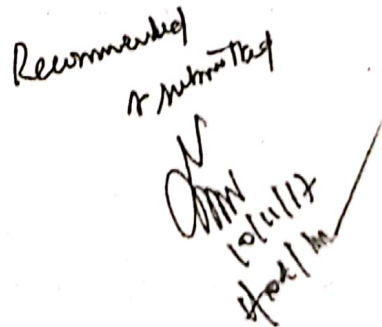 Recommended
& submitted
10/11/17